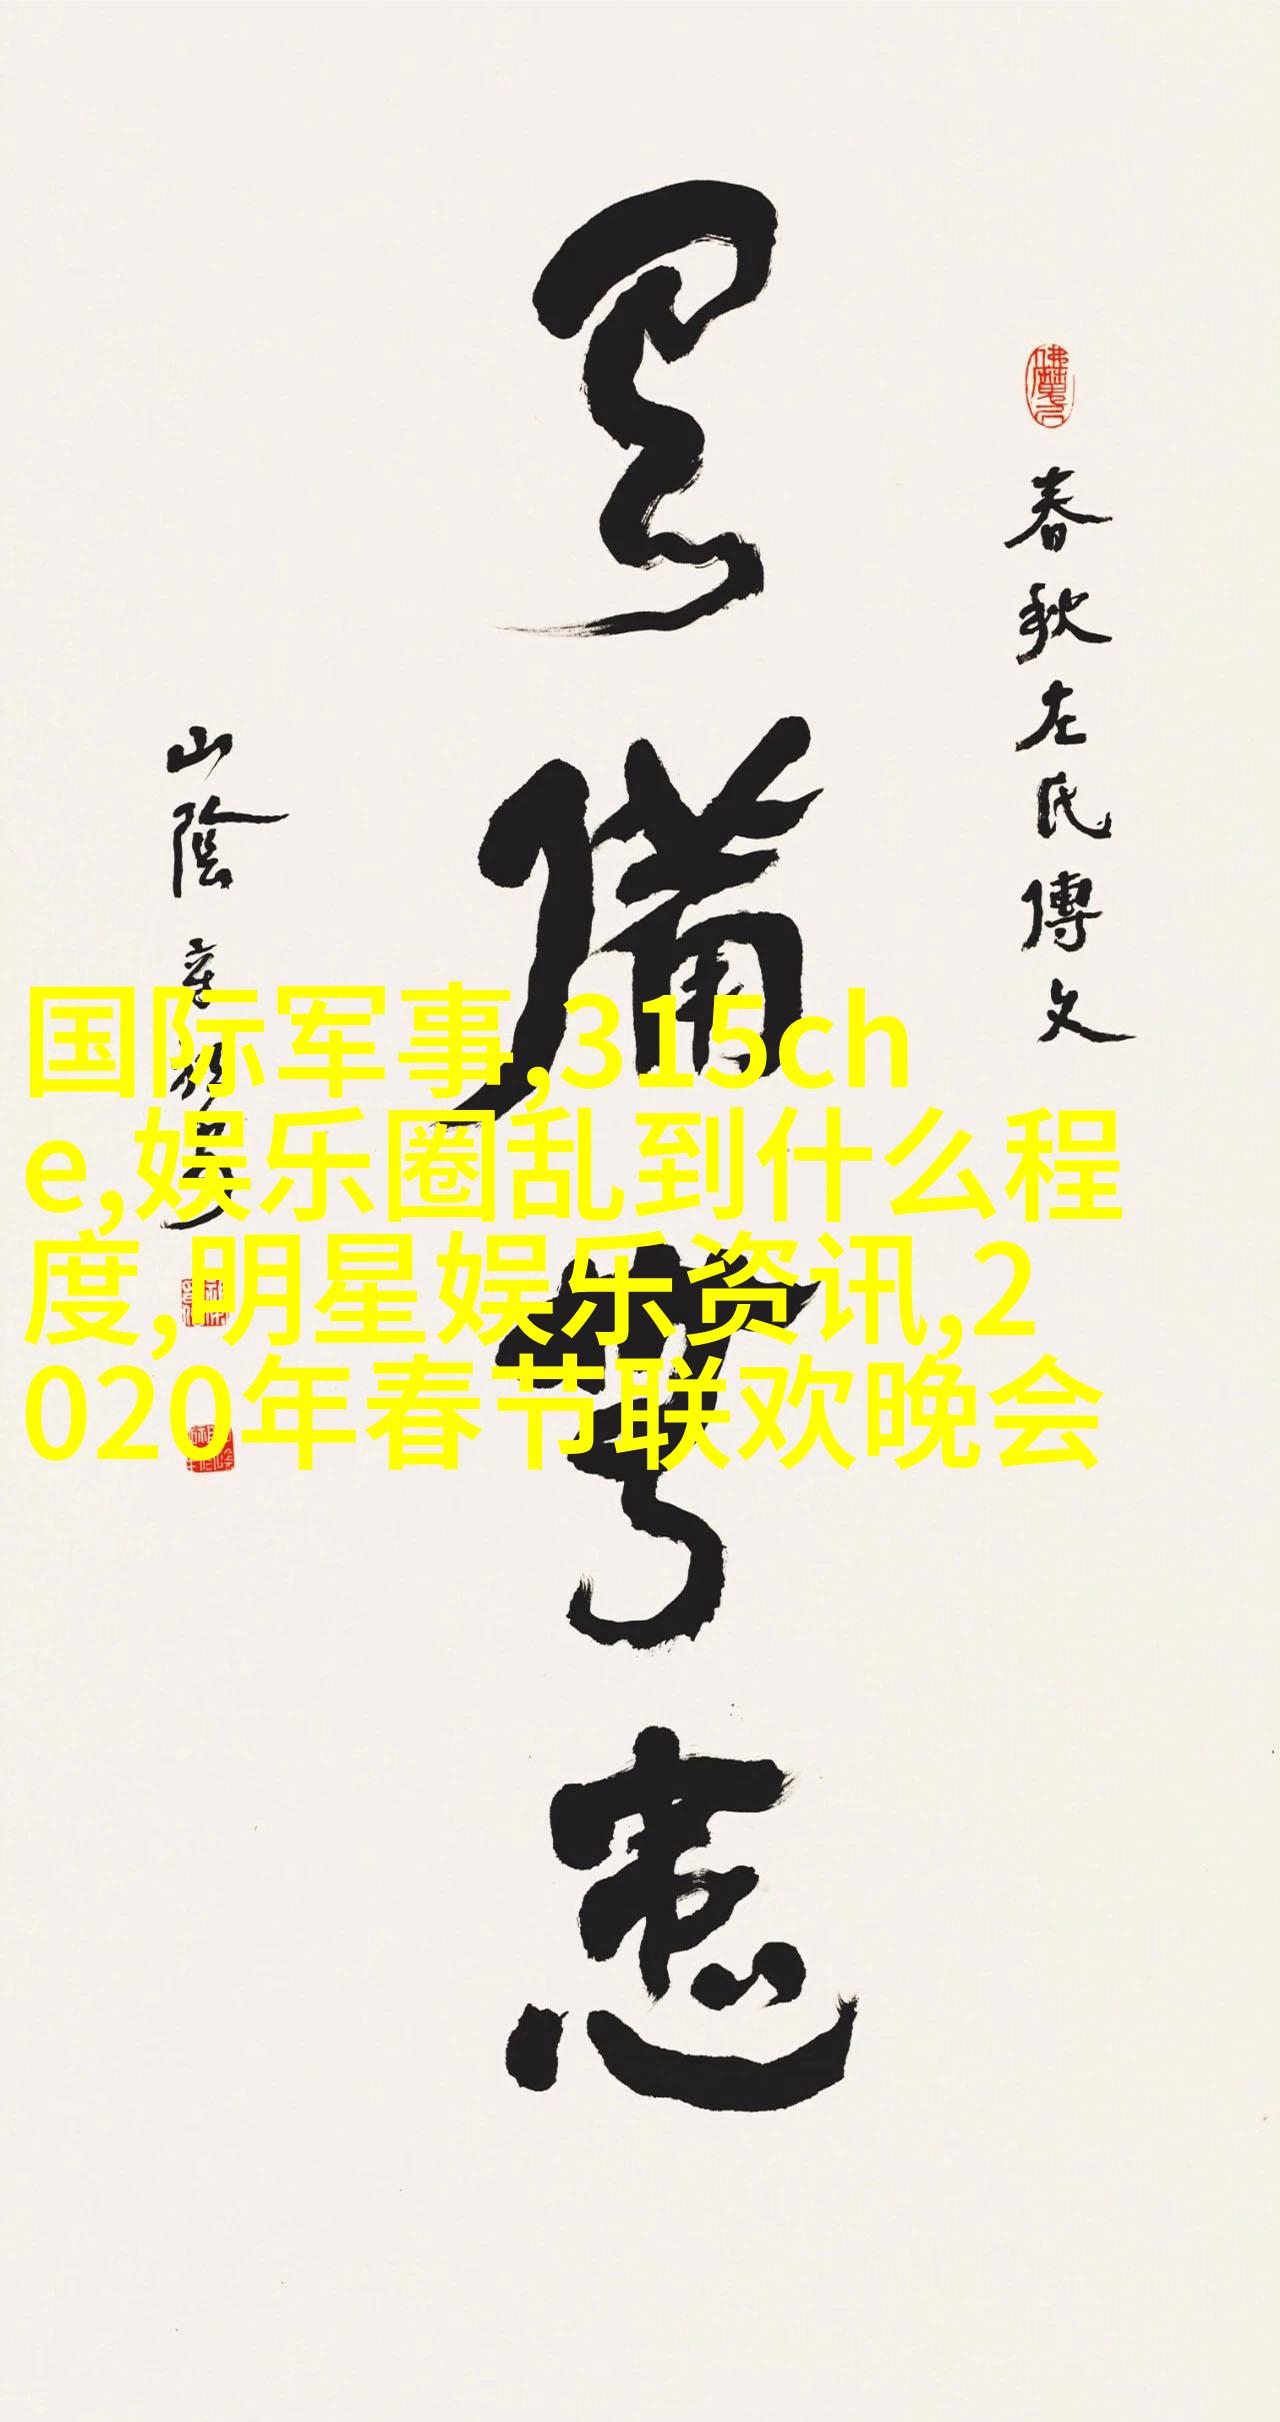 春秋左氏傳文
有備無患
山陰章祖安
国际军事,315ch
e,娱乐圈乱到什么程
度,明星娱乐资讯,2
020年春节联欢晚会